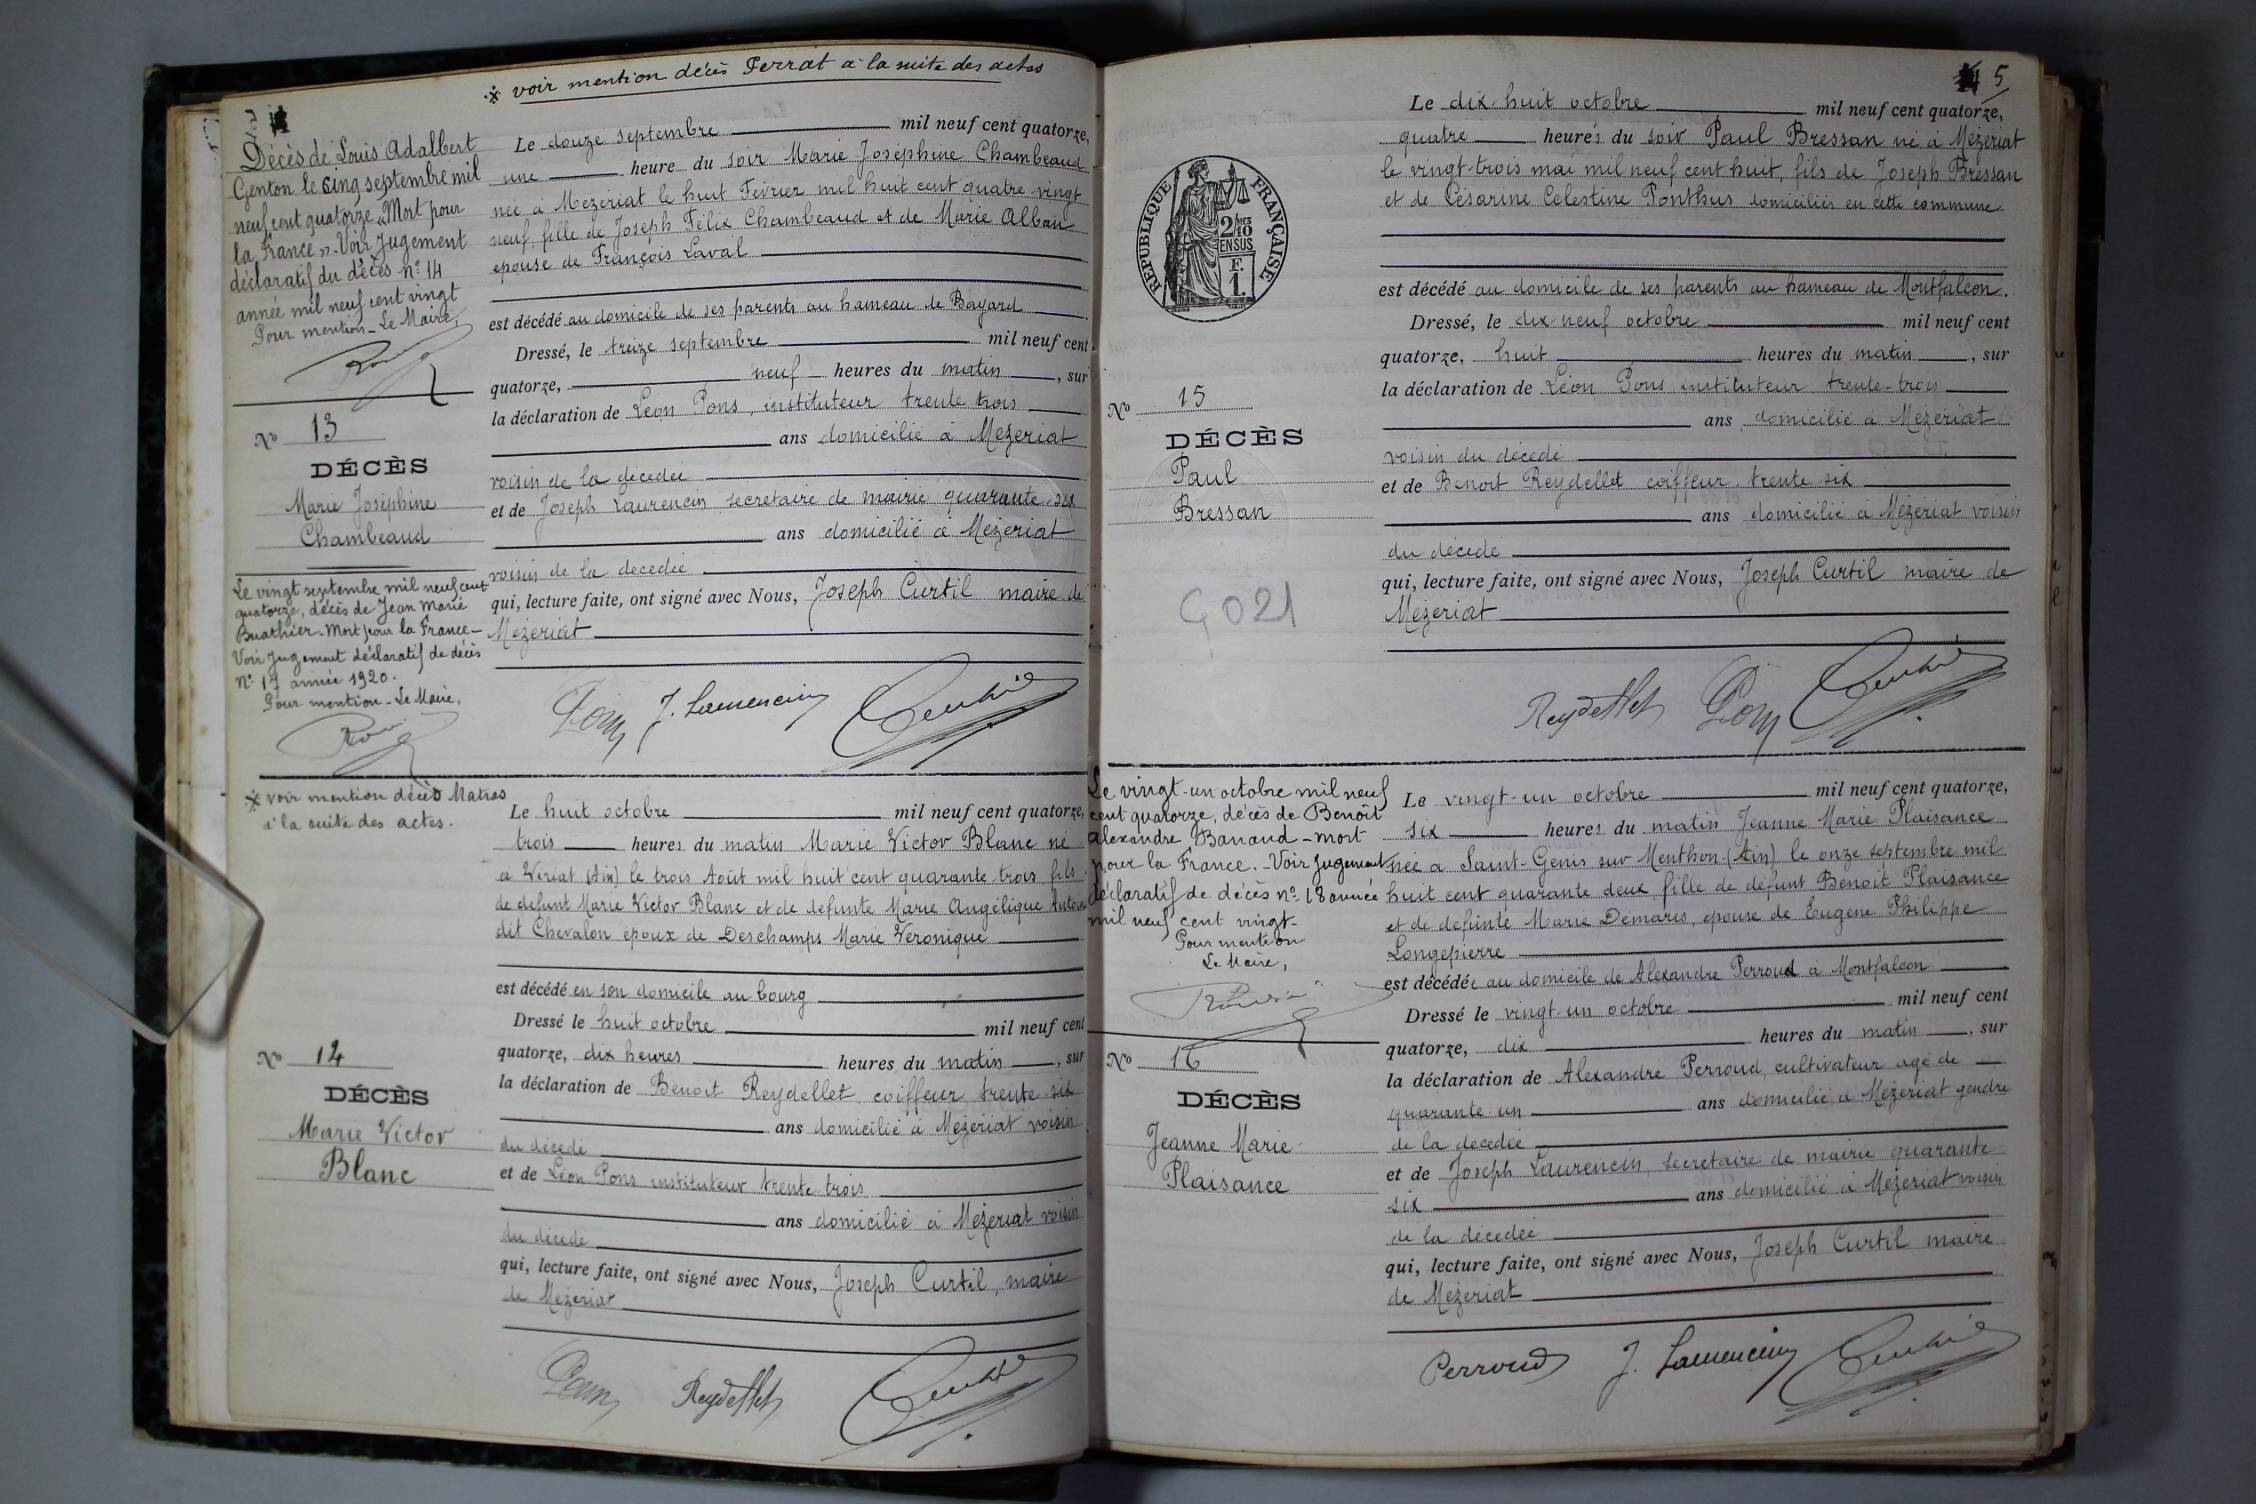 ※ voir mention décès Perrat à la suite des actes
Décès de Louis Adalbert
Genton le cinq septembre mil
neuf cent quatorze "Mort pour
la France". Voir Jugement
déclaratif du décès n° 14
année mil neuf cent vingt
Pour mention - Le Maire,
N° 13
DÉCÈS
Marie Joséphine
Chambeaud
Le vingt septembre mil neuf cent
quatorze, décès de Jean Marie
Buathier - Mort pour la France -
Voir Jugement déclaratif de décès
n° 17 année 1920.
Pour mention - Le Maire,
Le douze septembre mil neuf cent quatorze,
une heure du soir Marie Joséphine Chambeaud
née à Mézériat le huit Février mil huit cent quatre vingt
neuf, fille de Joseph Félix Chambeaud et de Marie Alban
épouse de François Laval
est décédé au domicile de ses parents au hameau de Bayard
Dressé, le treize septembre mil neuf cent
quatorze, neuf heures du matin, sur
la déclaration de Léon Pons, instituteur trente trois
ans domicilié à Mézériat
voisin de la décédée
et de Joseph Laurencin secrétaire de mairie quarante-six
ans domicilié à Mézériat
voisin de la décédée
qui, lecture faite, ont signé avec Nous, Joseph Curtil maire de
Mézériat
Pons J. Laurencin Curtil
※ voir mention décès Matras
à la suite des actes.
N° 14
DÉCÈS
Marie Victor
Blanc
Le huit octobre mil neuf cent quatorze,
trois heures du matin Marie Victor Blanc né
à Viriat (Ain) le trois Août mil huit cent quarante-trois fils
de défunt Marie Victor Blanc et de défunte Marie Angélique
dit Chevalon époux de Deschamps Marie Véronique
est décédé en son domicile au bourg
Dressé le huit octobre mil neuf cent
quatorze, dix heures heures du matin, sur
la déclaration de Benoit Reydellet, coiffeur trente-six
ans domicilié à Mézériat voisin
du décédé
et de Léon Pons instituteur trente trois
ans domicilié à Mézériat voisin
du décédé
qui, lecture faite, ont signé avec Nous, Joseph Curtil, maire
de Mézériat
Pons Reydellet Curtil
5
Le dix-huit octobre mil neuf cent quatorze,
quatre heures du soir Paul Bressan né à Mézériat
le vingt-trois mai mil neuf cent huit, fils de Joseph Bressan
et de Césarine Célestine Ponthus domiciliés en cette commune
est décédé au domicile de ses parents au hameau de Montfalcon.
Dressé, le dix-neuf octobre mil neuf cent
quatorze, huit heures du matin, sur
la déclaration de Léon Pons instituteur trente-trois
ans domicilié à Mézériat
voisin du décédé
et de Benoit Reydellet coiffeur trente six
ans domicilié à Mézériat voisin
du décédé
qui, lecture faite, ont signé avec Nous, Joseph Curtil maire de
Mézériat
Reydellet Pons Curtil
RÉPUBLIQUE FRANÇAISE
2/10 MES
EN SUS
F.
1.
N° 15
DÉCÈS
Paul
Bressan
9021
Le vingt-un octobre mil neuf
cent quatorze, décès de Benoît
Alexandre Banand - mort
pour la France. - Voir Jugement
déclaratif de décès n° 18 année
mil neuf cent vingt -
Pour mention
Le Maire,
N° 16
DÉCÈS
Jeanne Marie
Plaisance
Le vingt-un octobre mil neuf cent quatorze,
six heures du matin Jeanne Marie Plaisance
née à Saint-Genis sur Menthon (Ain) le onze septembre mil
huit cent quarante deux, fille de défunt Benoit Plaisance
et de défunte Marie Démaris, épouse de Eugène Philippe
Longepierre
est décédée au domicile de Alexandre Perroud à Montfalcon
Dressé le vingt-un octobre mil neuf cent
quatorze, dix heures du matin, sur
la déclaration de Alexandre Perroud, cultivateur agé de
quarante-un ans domicilié à Mézériat gendre
de la décédée
et de Joseph Laurencin, secrétaire de mairie quarante
six ans domicilié à Mézériat voisin
de la décédée
qui, lecture faite, ont signé avec Nous, Joseph Curtil maire
de Mézériat
Perroud J. Laurencin Curtil